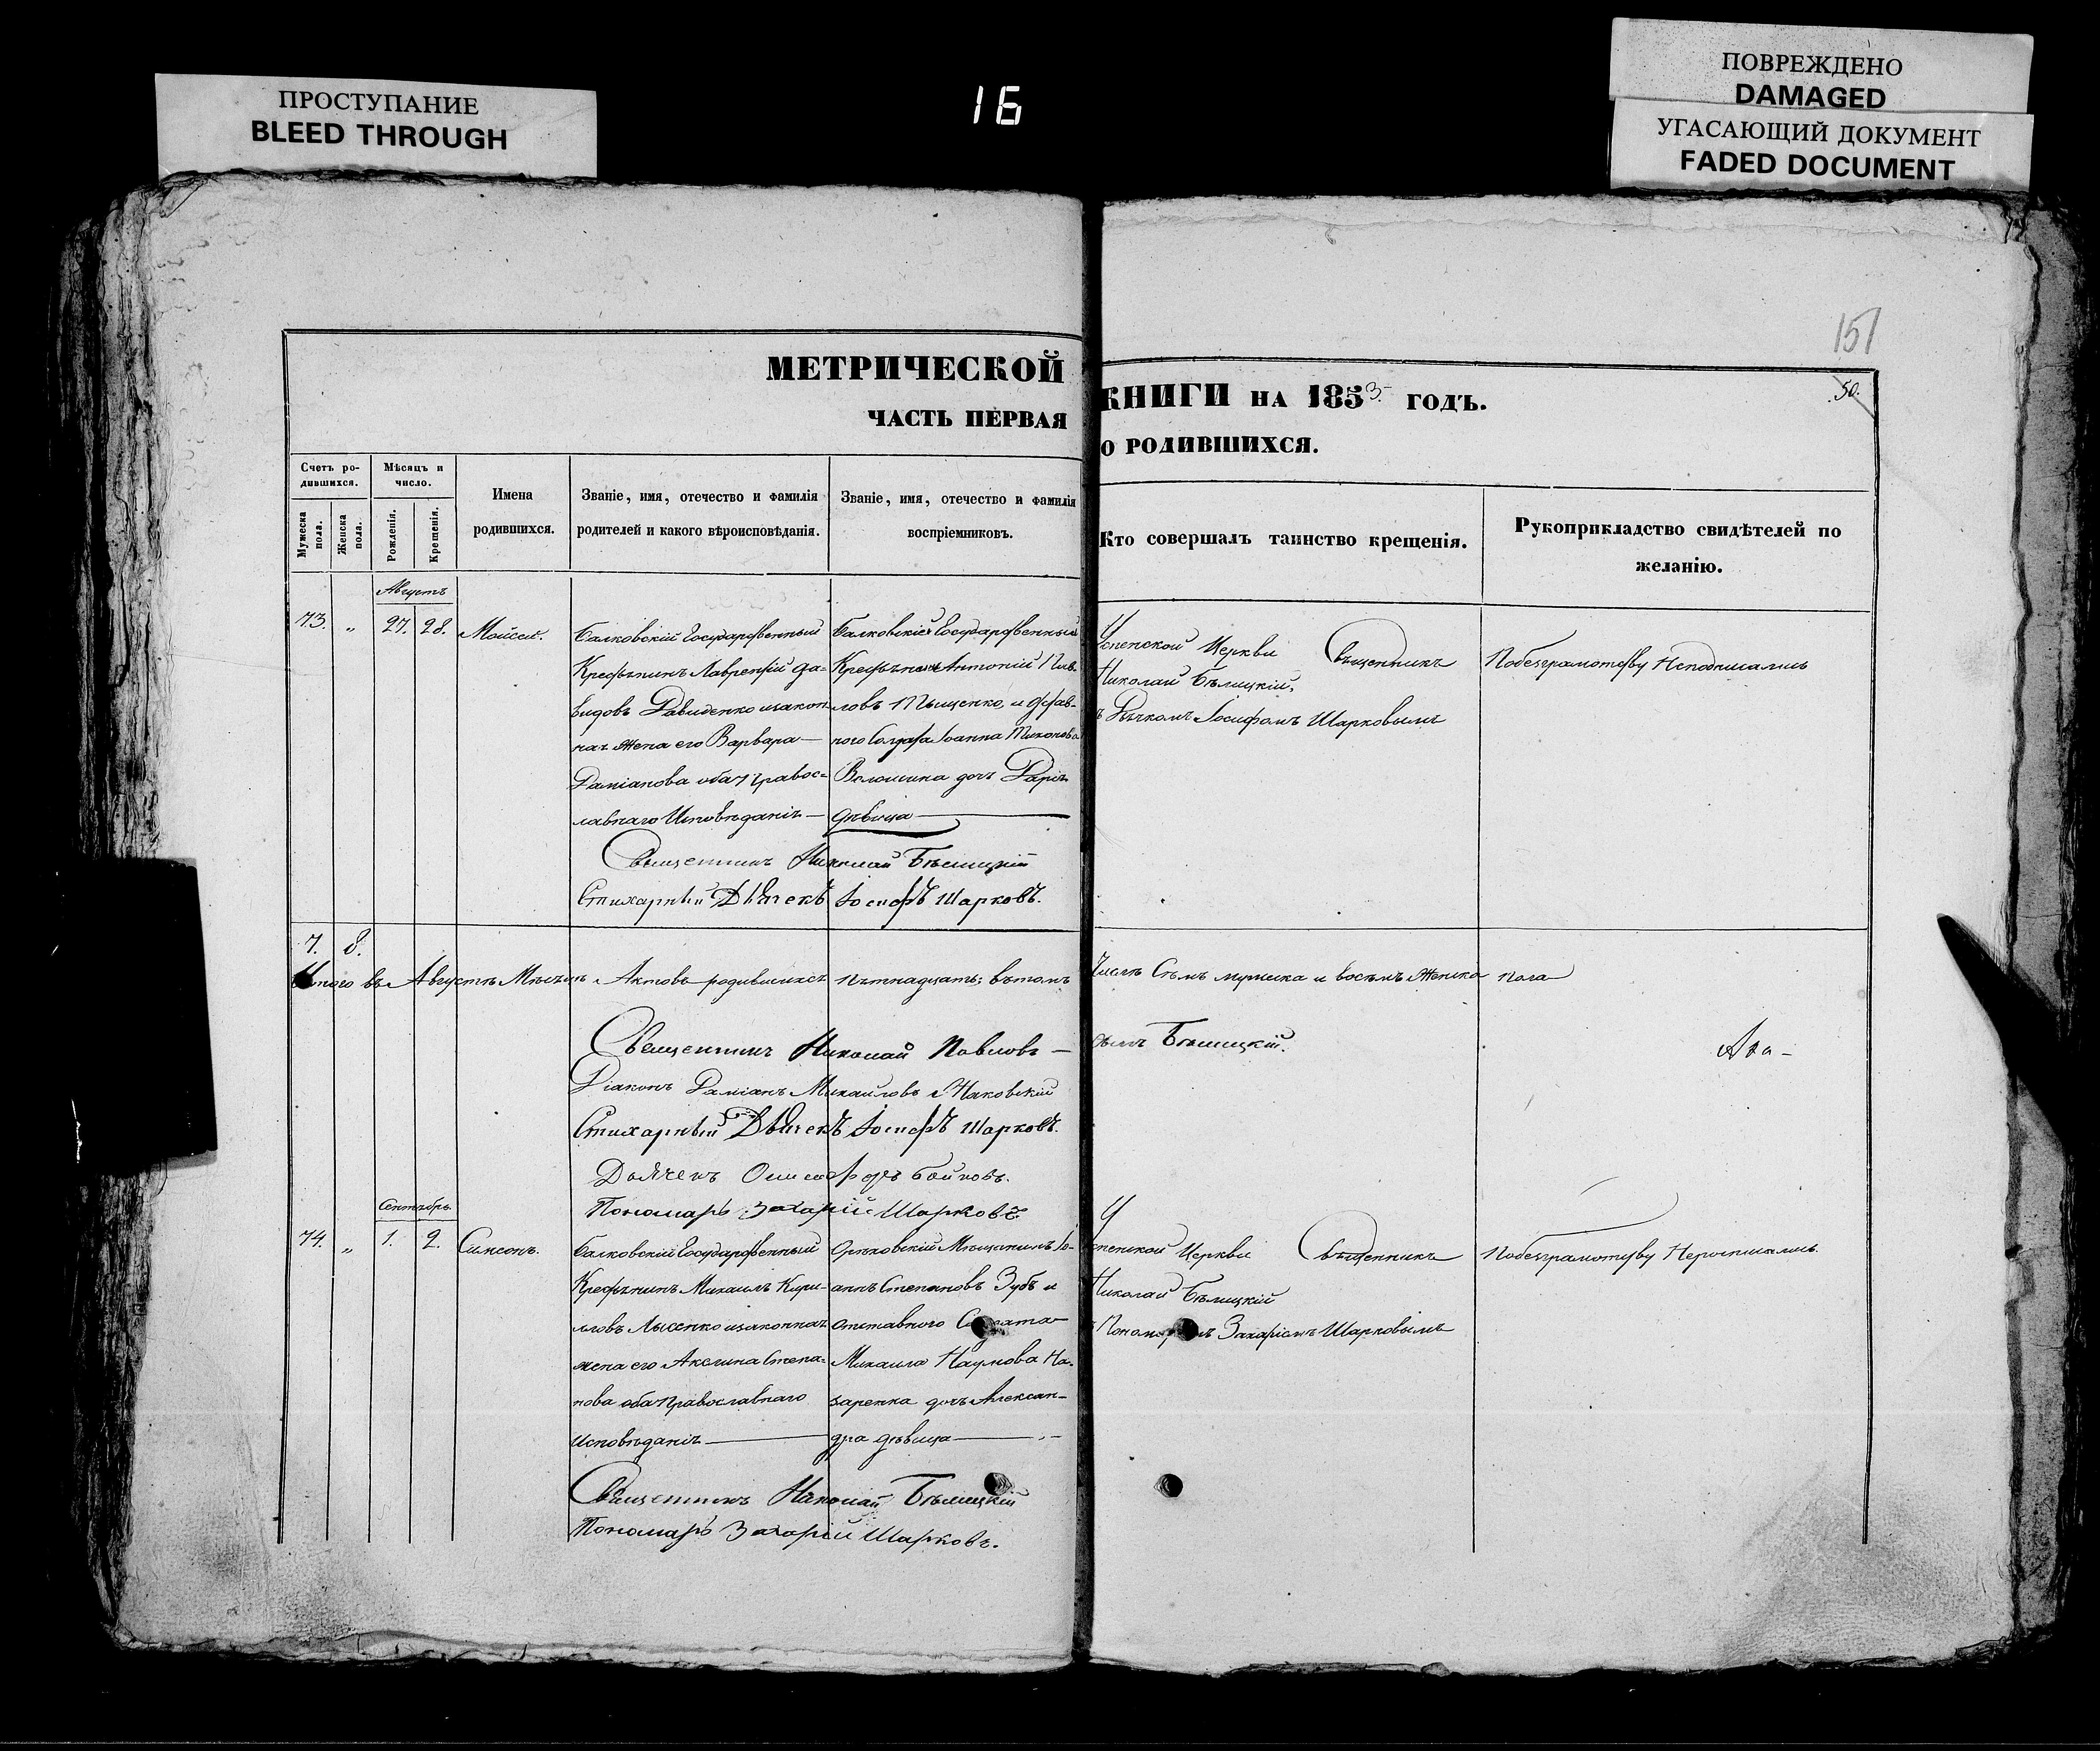 ПРОСТУПАНИЕ
BLEED THROUGH
16
ПОВРЕЖДЕНО
DAMAGED
УГАСАЮЩИЙ ДОКУМЕНТ
FADED DOCUMENT
151
50.
МЕТРИЧЕСКОЙ КНИГИ НА 1853 ГОДЪ.
ЧАСТЬ ПЕРВАЯ О РОДИВШИХСЯ.
Счетъ ро-
дившихся.
Мужеска пола.
Женска пола.
Мѣсяцъ и
число.
Рожденія.
Крещенія.
Имена
родившихся.
Званіе, имя, отечество и фамилія
родителей и какого вѣроисповѣданія.
Званіе, имя, отечество и фамилія
воспріемниковъ.
Кто совершалъ таинство крещенія.
Рукоприкладство свидѣтелей по
желанію.
Августъ
73. " 27. 28. Моисей.
Балковскій Государственный
Крестьянинъ Лаврентій Да-
видовъ Давиденко и закон-
ная жена его Варвара
Даміанова оба Правос-
лавнаго Исповѣданія
Балковскій Государственный
Крестьянинъ Антоній Пав-
ловъ Тищенко, и Отстав-
ного Солдата Іоанна Тихонова
Волошина дочь Дарія
дѣвица
Успенской Церкви Священникъ
Николай Бѣлицкій,
съ Дячкомъ Іосифомъ Шарковымъ
По безграмотству Неподписались
Священникъ Николай Бѣлицкій
Стихарный Дьячекъ Іосифъ Шарковъ.
7. 8.
Итого въ Августѣ Мѣсяцѣ Актовъ родившихся пятнадцать; въ томъ числѣ Семь мужеска и восемь Женска пола
Священникъ Николай Павловъ сынъ Бѣлицкій.
Діаконъ Даміанъ Михайловъ
Стихарный Дьячекъ Іосифъ Шарковъ.
Дьячекъ Бойковъ.
Пономарь Захарій Шарковъ.
Сентябрь.
74. " 1. 2. Симеонъ.
Балковскій Государственный
Крестьянинъ Михаилъ Кири-
ловъ Лысенко и законная
жена его Акилина Степа-
нова оба Православнаго
Исповѣданія
Орѣховскій Мѣщанинъ Іо-
аннъ Степановъ Зубъ и
отставного Солдата
Михаила Наумова На-
заренка дочь Алексан-
дра дѣвица
Успенской Церкви Священникъ
Николай Бѣлицкій
съ Пономаремъ Захаріемъ Шарковымъ
По безграмотству Нерасписались.
Священникъ Николай Бѣлицкій
Пономарь Захарій Шарковъ.